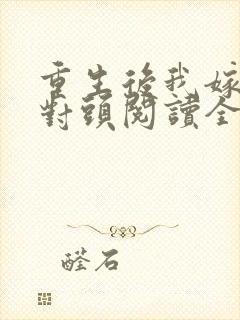 重生後我嫁
對頭閱讀全
醛石